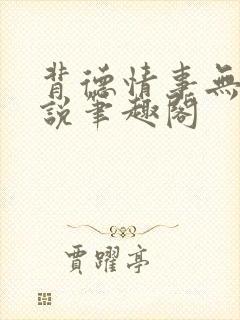 背德情事無
說筆趣閣
賈躍亭